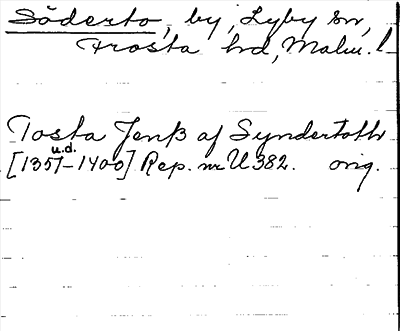 Söderto, by, Lyby sn,
Frosta hd, Malm. l.
Tosta Jenß af Syndertofth
u.d.
[1351-1400] Rep. nr U 382. orig.